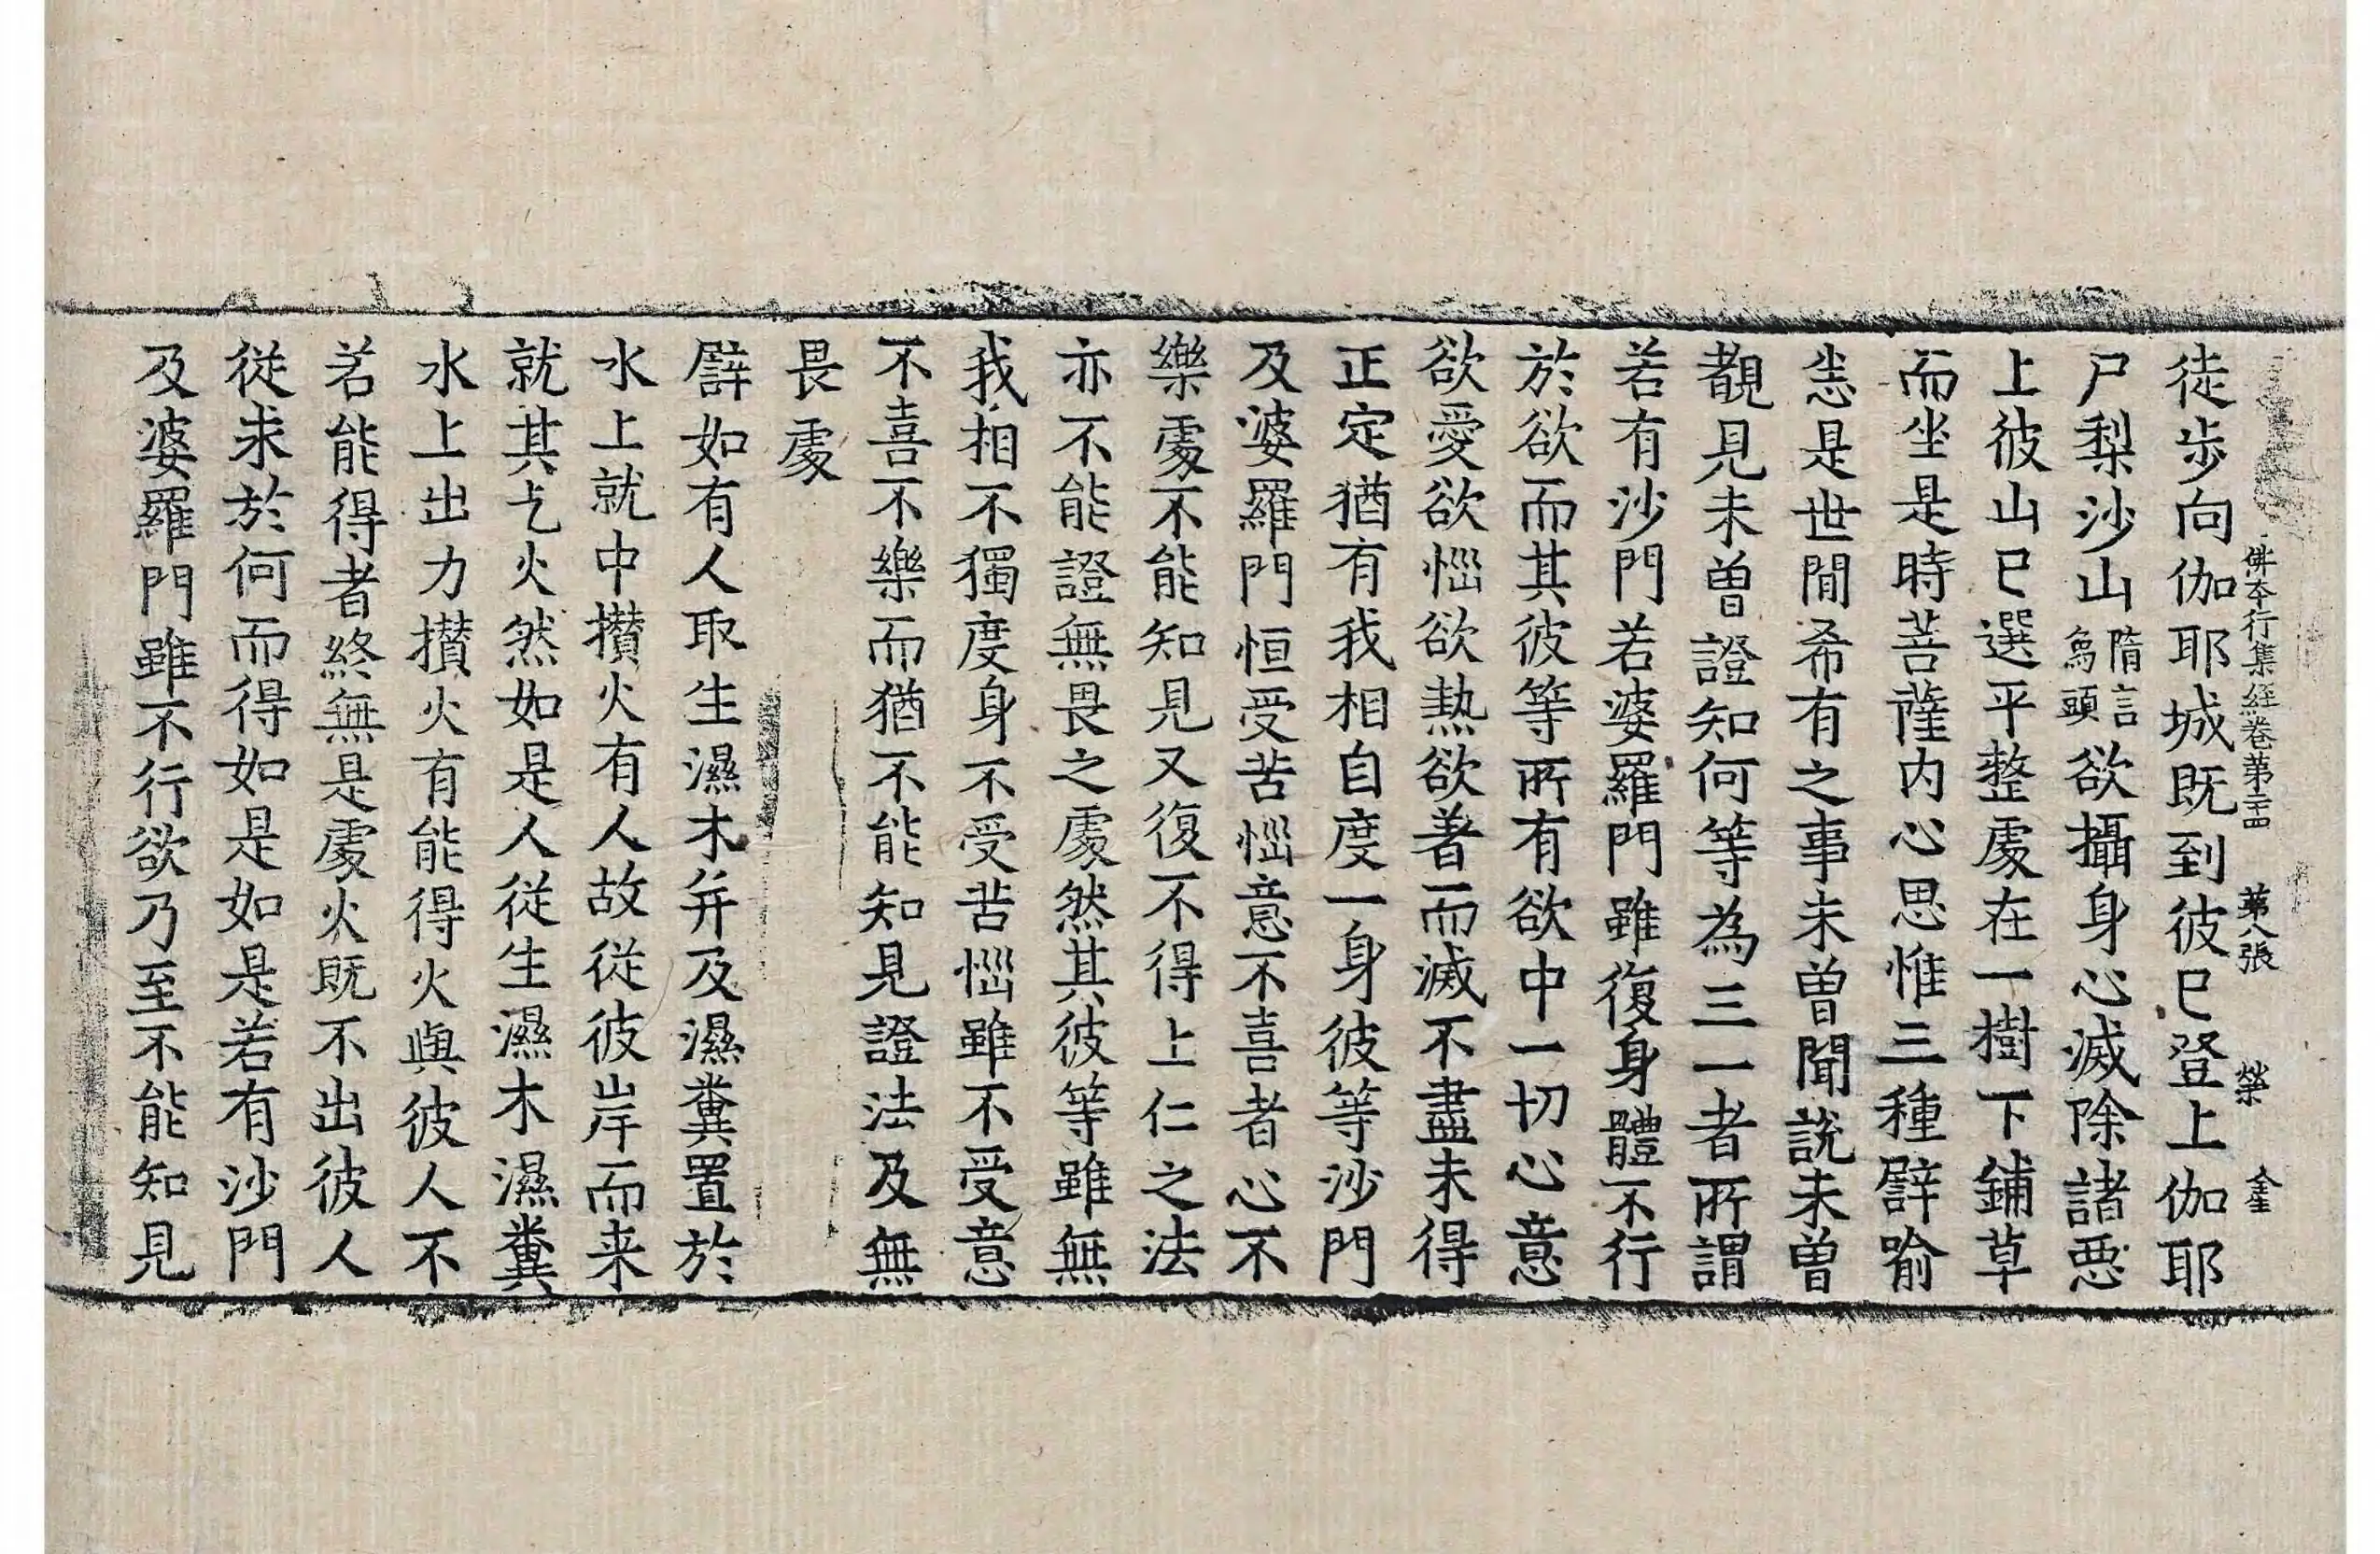 佛本行集經卷第二十四 第八張 榮
徒步向伽耶城既到彼已登上伽耶
尸梨沙山隋言烏頭欲攝身心滅除諸惡
上彼山已選平整處在一樹下鋪草
而坐是時菩薩內心思惟三種譬喻
恙是世間希有之事未曾聞說未曾
覩見未曾證知何等為三一者所謂
若有沙門若婆羅門雖復身體不行
於欲而其彼等所有欲中一切心意
欲愛欲惱欲熱欲著而滅不盡未得
正定猶有我相自度一身彼等沙門
及婆羅門恒受苦惱意不喜者心不
樂處不能知見又復不得上仁之法
亦不能證無畏之處然其彼等雖無
我相不獨度身不受苦惱雖不受意
不喜不樂而猶不能知見證法及無
畏處
譬如有人取生濕木并及濕糞置於
水上就中攅火有人故從彼岸而来
就其乞火然如是人從生濕木濕糞
水上出力攅火有能得火與彼人不
若能得者終無是處火既不出彼人
從求於何而得如是如是若有沙門
及婆羅門雖不行欲乃至不能知見